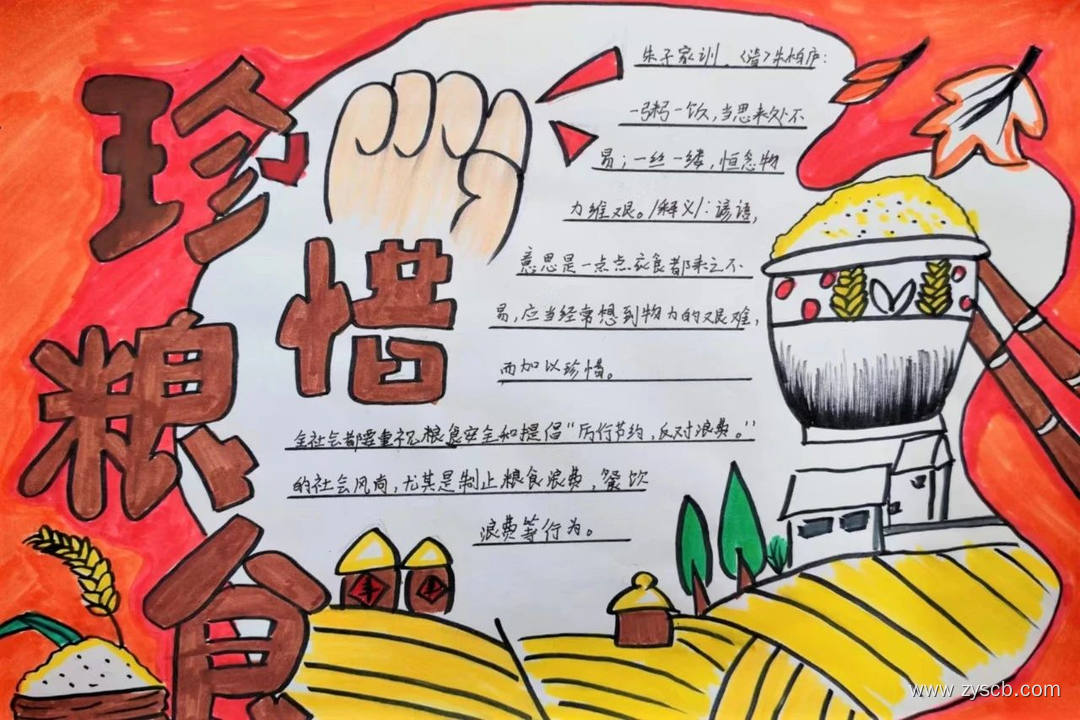 珍
惜
粮
食
朱子家训.《清》朱柏庐:
一粥一饭,当思来处不
易;一丝一缕,恒念物
力维艰。/释义/:谚语,
意思是一点点衣食都来之不
易,应当经常想到物力的艰难,
而加以珍惜。
全社会都需重视粮食安全和提倡“厉行节约,反对浪费。”
的社会风尚,尤其是制止粮食浪费,餐饮
浪费等行为。
www.zyscb.com